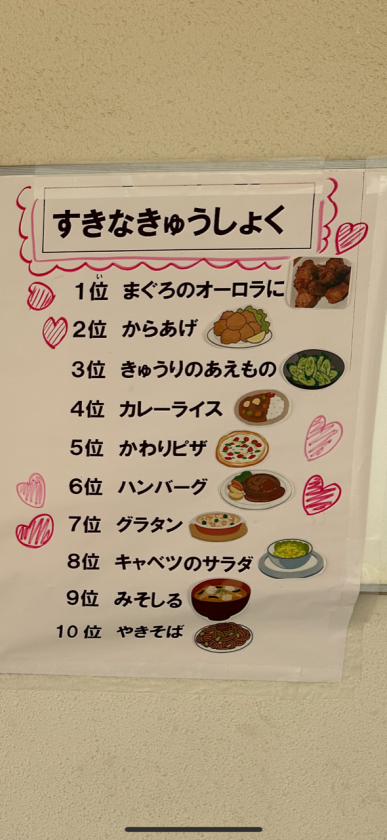 すきなきゅうしょく
い
1位 まぐろのオーロラに
2位 からあげ
3位 きゅうりのあえもの
4位 カレーライス
5位 かわりピザ
6位 ハンバーグ
7位 グラタン
8位 キャベツのサラダ
9位 みそしる
10位 やきそば